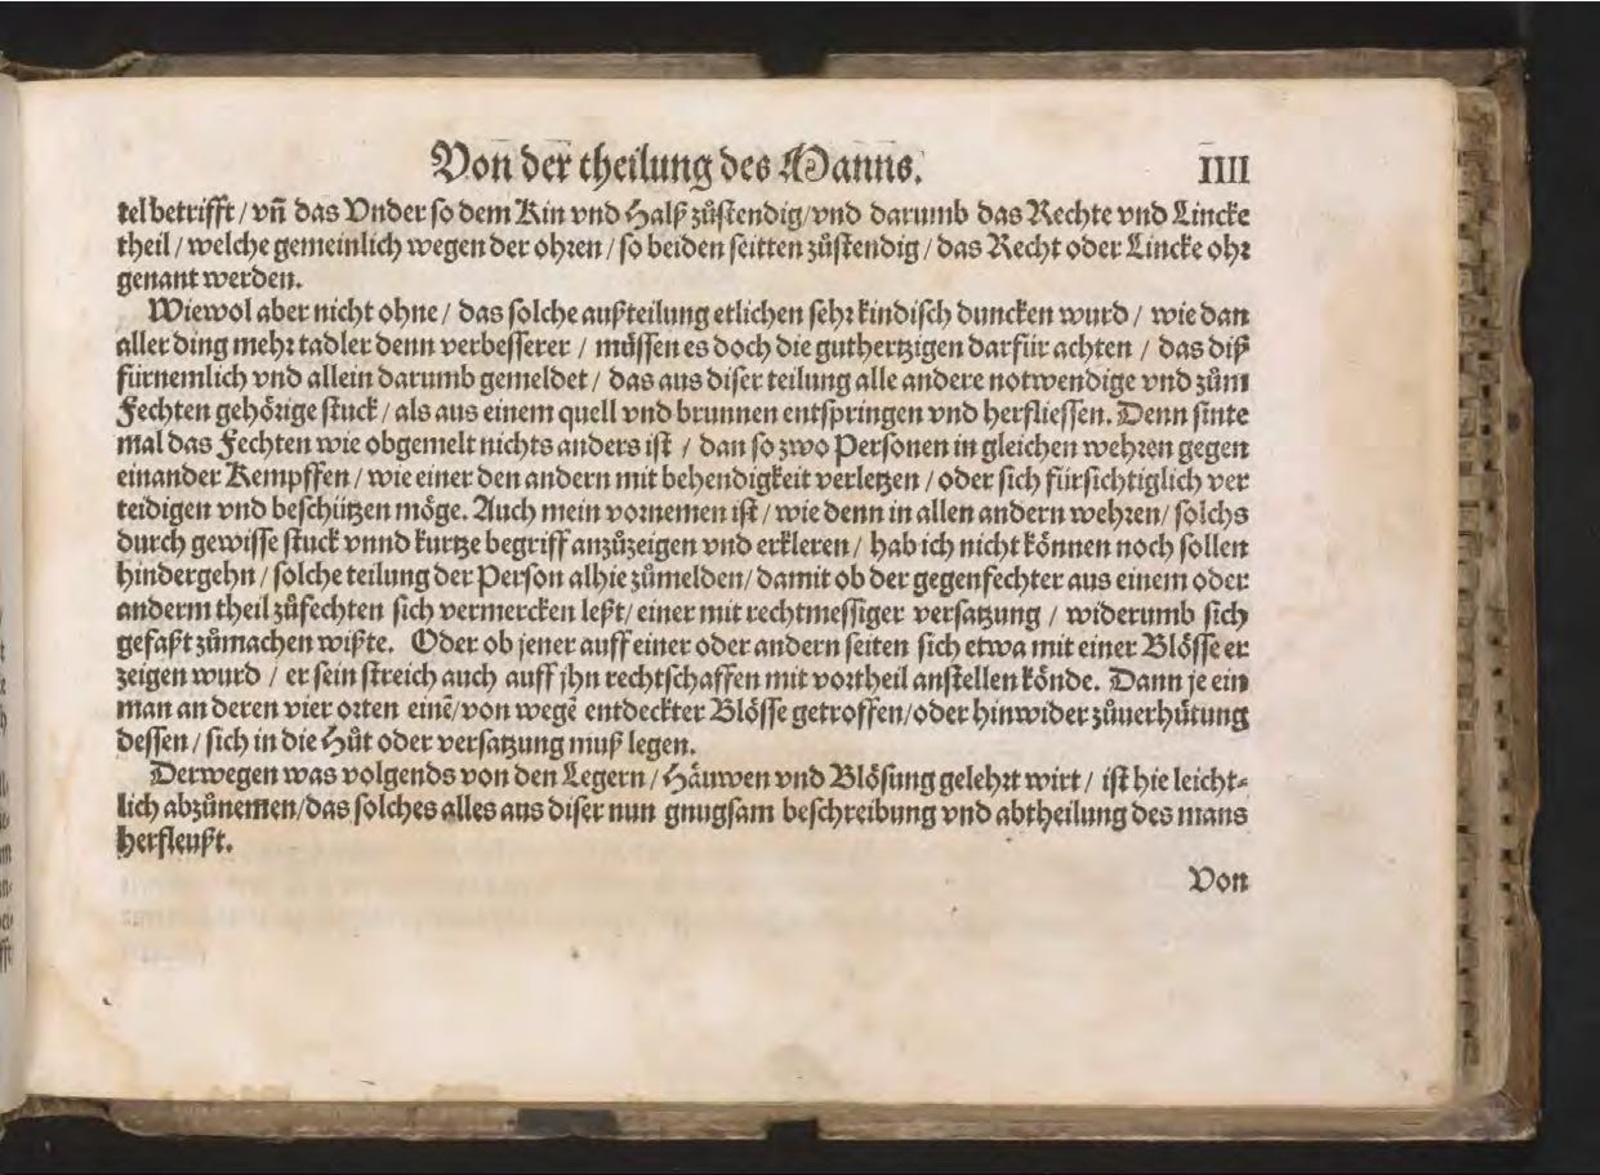 Von der theilung des Manns. IIII
tel betrifft / vñ das Vnder so dem Kin vnd Halß zůstendig / vnd darumb das Rechte vnd Lincke
theil / welche gemeinlich wegen der ohren / so beiden seitten zůstendig / das Recht oder Lincke ohr
genant werden.
Wiewol aber nicht ohne / das solche außteilung etlichen sehr kindisch duncken wurd / wie dan
aller ding mehr tadler denn verbesserer / müssen es doch die guthertzigen darfür achten / das diß
fürnemlich vnd allein darumb gemeldet / das aus diser teilung alle andere notwendige vnd zům
Fechten gehörige stuck / als aus einem quell vnd brunnen entspringen vnd herfliessen. Denn sinte
mal das Fechten wie obgemelt nichts anders ist / dan so zwo Personen in gleichen wehren gegen
einander Kempffen / wie einer den andern mit behendigkeit verletzen / oder sich fürsichtiglich ver
teidigen vnd beschützen möge. Auch mein vornemen ist / wie denn in allen andern wehren / solchs
durch gewisse stuck vnnd kurtze begriff anzůzeigen vnd erkleren / hab ich nicht können noch sollen
hindergehn / solche teilung der Person alhie zůmelden / damit ob der gegenfechter aus einem oder
anderm theil zůfechten sich vermercken leßt / einer mit rechtmessiger versatzung / widerumb sich
gefaßt zůmachen wißte. Oder ob jener auff einer oder andern seiten sich etwa mit einer Blösse er
zeigen wurd / er sein streich auch auff jhn rechtschaffen mit vortheil anstellen könde. Dann je ein
man an deren vier orten einẽ / von wegẽ entdeckter Blösse getroffen / oder hinwider zůuerhütung
dessen / sich in die Hůt oder versatzung muß legen.
Derwegen was volgends von den Legern / Häuwen vnd Blösung gelehrt wirt / ist hie leicht-
lich abzůnemen / das solches alles aus diser nun gnugsam beschreibung vnd abtheilung des mans
herfleußt.
Von